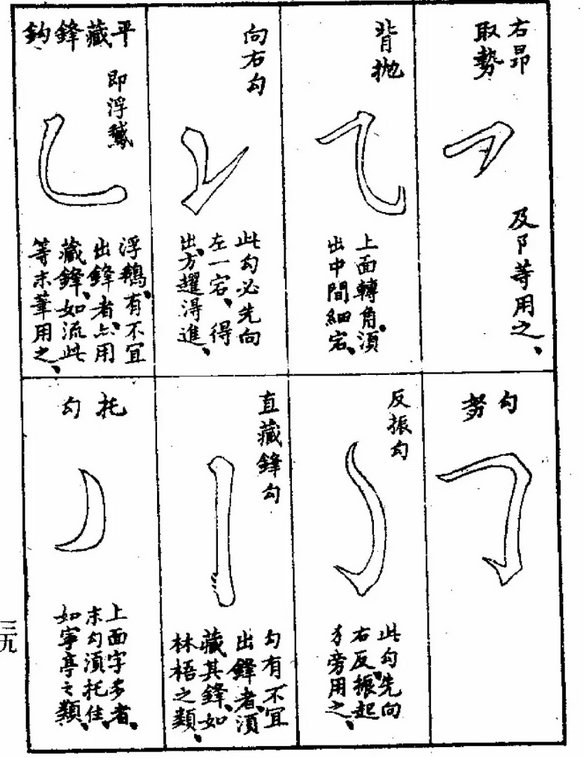 右昂
取勢
及阝等用之、
背拋
上面轉角、須
出中間細宕、
向右勾
此勾必先向
左一宕、得
出、方趯得進、
平藏鋒鈎
即浮鵞
浮鵝、有不宜
出鋒者、亦用
藏鋒、如流此
等末筆用之、
勾努
反振勾
此勾、先向
右反振起
犭旁用之、
直藏鋒勾
勾有不宜
出鋒者、須
藏其鋒、如
林梧之類、
托勾
上面字多者、
末勾須托住、
如寧亭之類、
三九